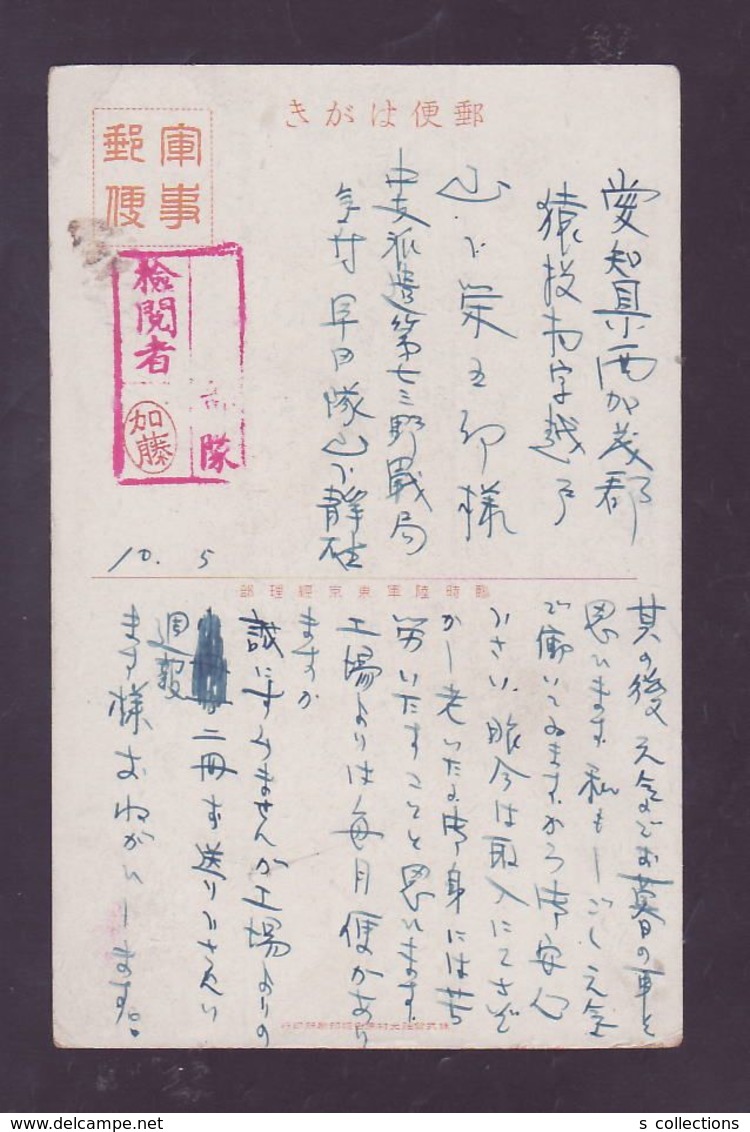 郵便はがき
軍事
郵便
検閲者
加藤
部
隊
愛知県西加茂郡
猿投村字越戸
山下栄五郎様
中支派遣第七三野戦局
気付早田隊山下静雄
10. 5
臨時陸軍東京経理部
其の後元気でお暮しの事と
思ひます 私も元気
で働いてゐますから御安心
下さい、昨今は取入にてさぞ
かし老いたる御身には苦
労いたすことと思ひます
工場よりは毎月便があり
ますか
誠にすみませんが工場よりの
週報
二冊お送り下さい
ます様おねがひします。
s collections